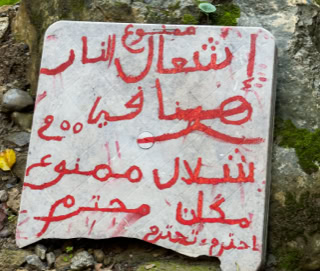 ممنوع
إشعال النار
هنا
شلال ممنوع
مكان محترم
احترم تحترم